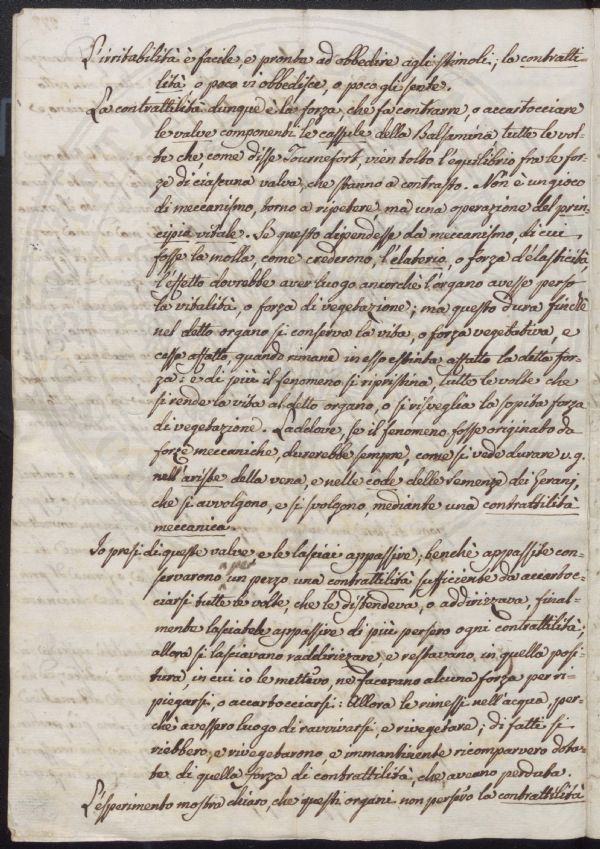 L'irritabilità è facile, e pronta ad obbedire agli stimoli; la contratti-
lità o poco vi obbedisce, o poco gli sente.
La contrattilità dunque è la forza, che fa contrarre, o accartocciare
le valve componenti le cassule della balsamina tutte le vol-
te che, come disse Tournefort, vien tolto l'equilibrio fra le for-
ze di ciascuna valva, che stanno a contrasto. Non è un gioco
di meccanismo, torno a ripetere, ma una operazione del prin-
cipia vitale. Se questo dipendesse da meccanismo, di cui
fosse la molla, come crederono, l'elaterio, o forza d'elasticità,
l'effetto dovrebbe aver luogo ancorchè l'organo avesse perso
la vitalità, o forza di vegetazione; ma questo dura finchè
nel detto organo si conserva la vita, o forza vegetativa, e
cessa affatto, quando rimane in esso estinta affatto la detta for-
za: e di più il fenomeno si ripristina, tutte le volte che
si rende la vita al detto organo, o si risveglia la sopita forza
di vegetazione. Laddove, se il fenomeno fosse originato da
forze meccaniche, durerebbe sempre, come si vede durare v.g.
nell'ariste della vena, e nelle code delle semenze dei Geranj,
che si avvolgono, e si svolgono, mediante una contrattilità
meccanica.
Io presi di queste valve e le lasciai appassire; benchè appassite con-
servarono per un pezzo una contrattilità sufficiente da accartoc-
ciarsi tutte le volte, che le distendeva, o addirizzava, final-
mente lasciatele appassire di più persero ogni contrattilità;
allora si lasciavano raddirizzare, e restavano in quella posi-
tura, in cui io le mettevo, ne facevano alcuna forza per ri-
piegarsi, o accartocciarsi: Allora le rimessi nell'acqua, per-
chè avessero luogo di ravvivarsi, e rivegetare; di fatti si
riebbero, e rivegetarono, e immantinente ricomparvero dota-
te di quella forza di contrattilità, che aveano perduta.
L'esperimento mostra chiaro, che questi organi non persero la contrattilità